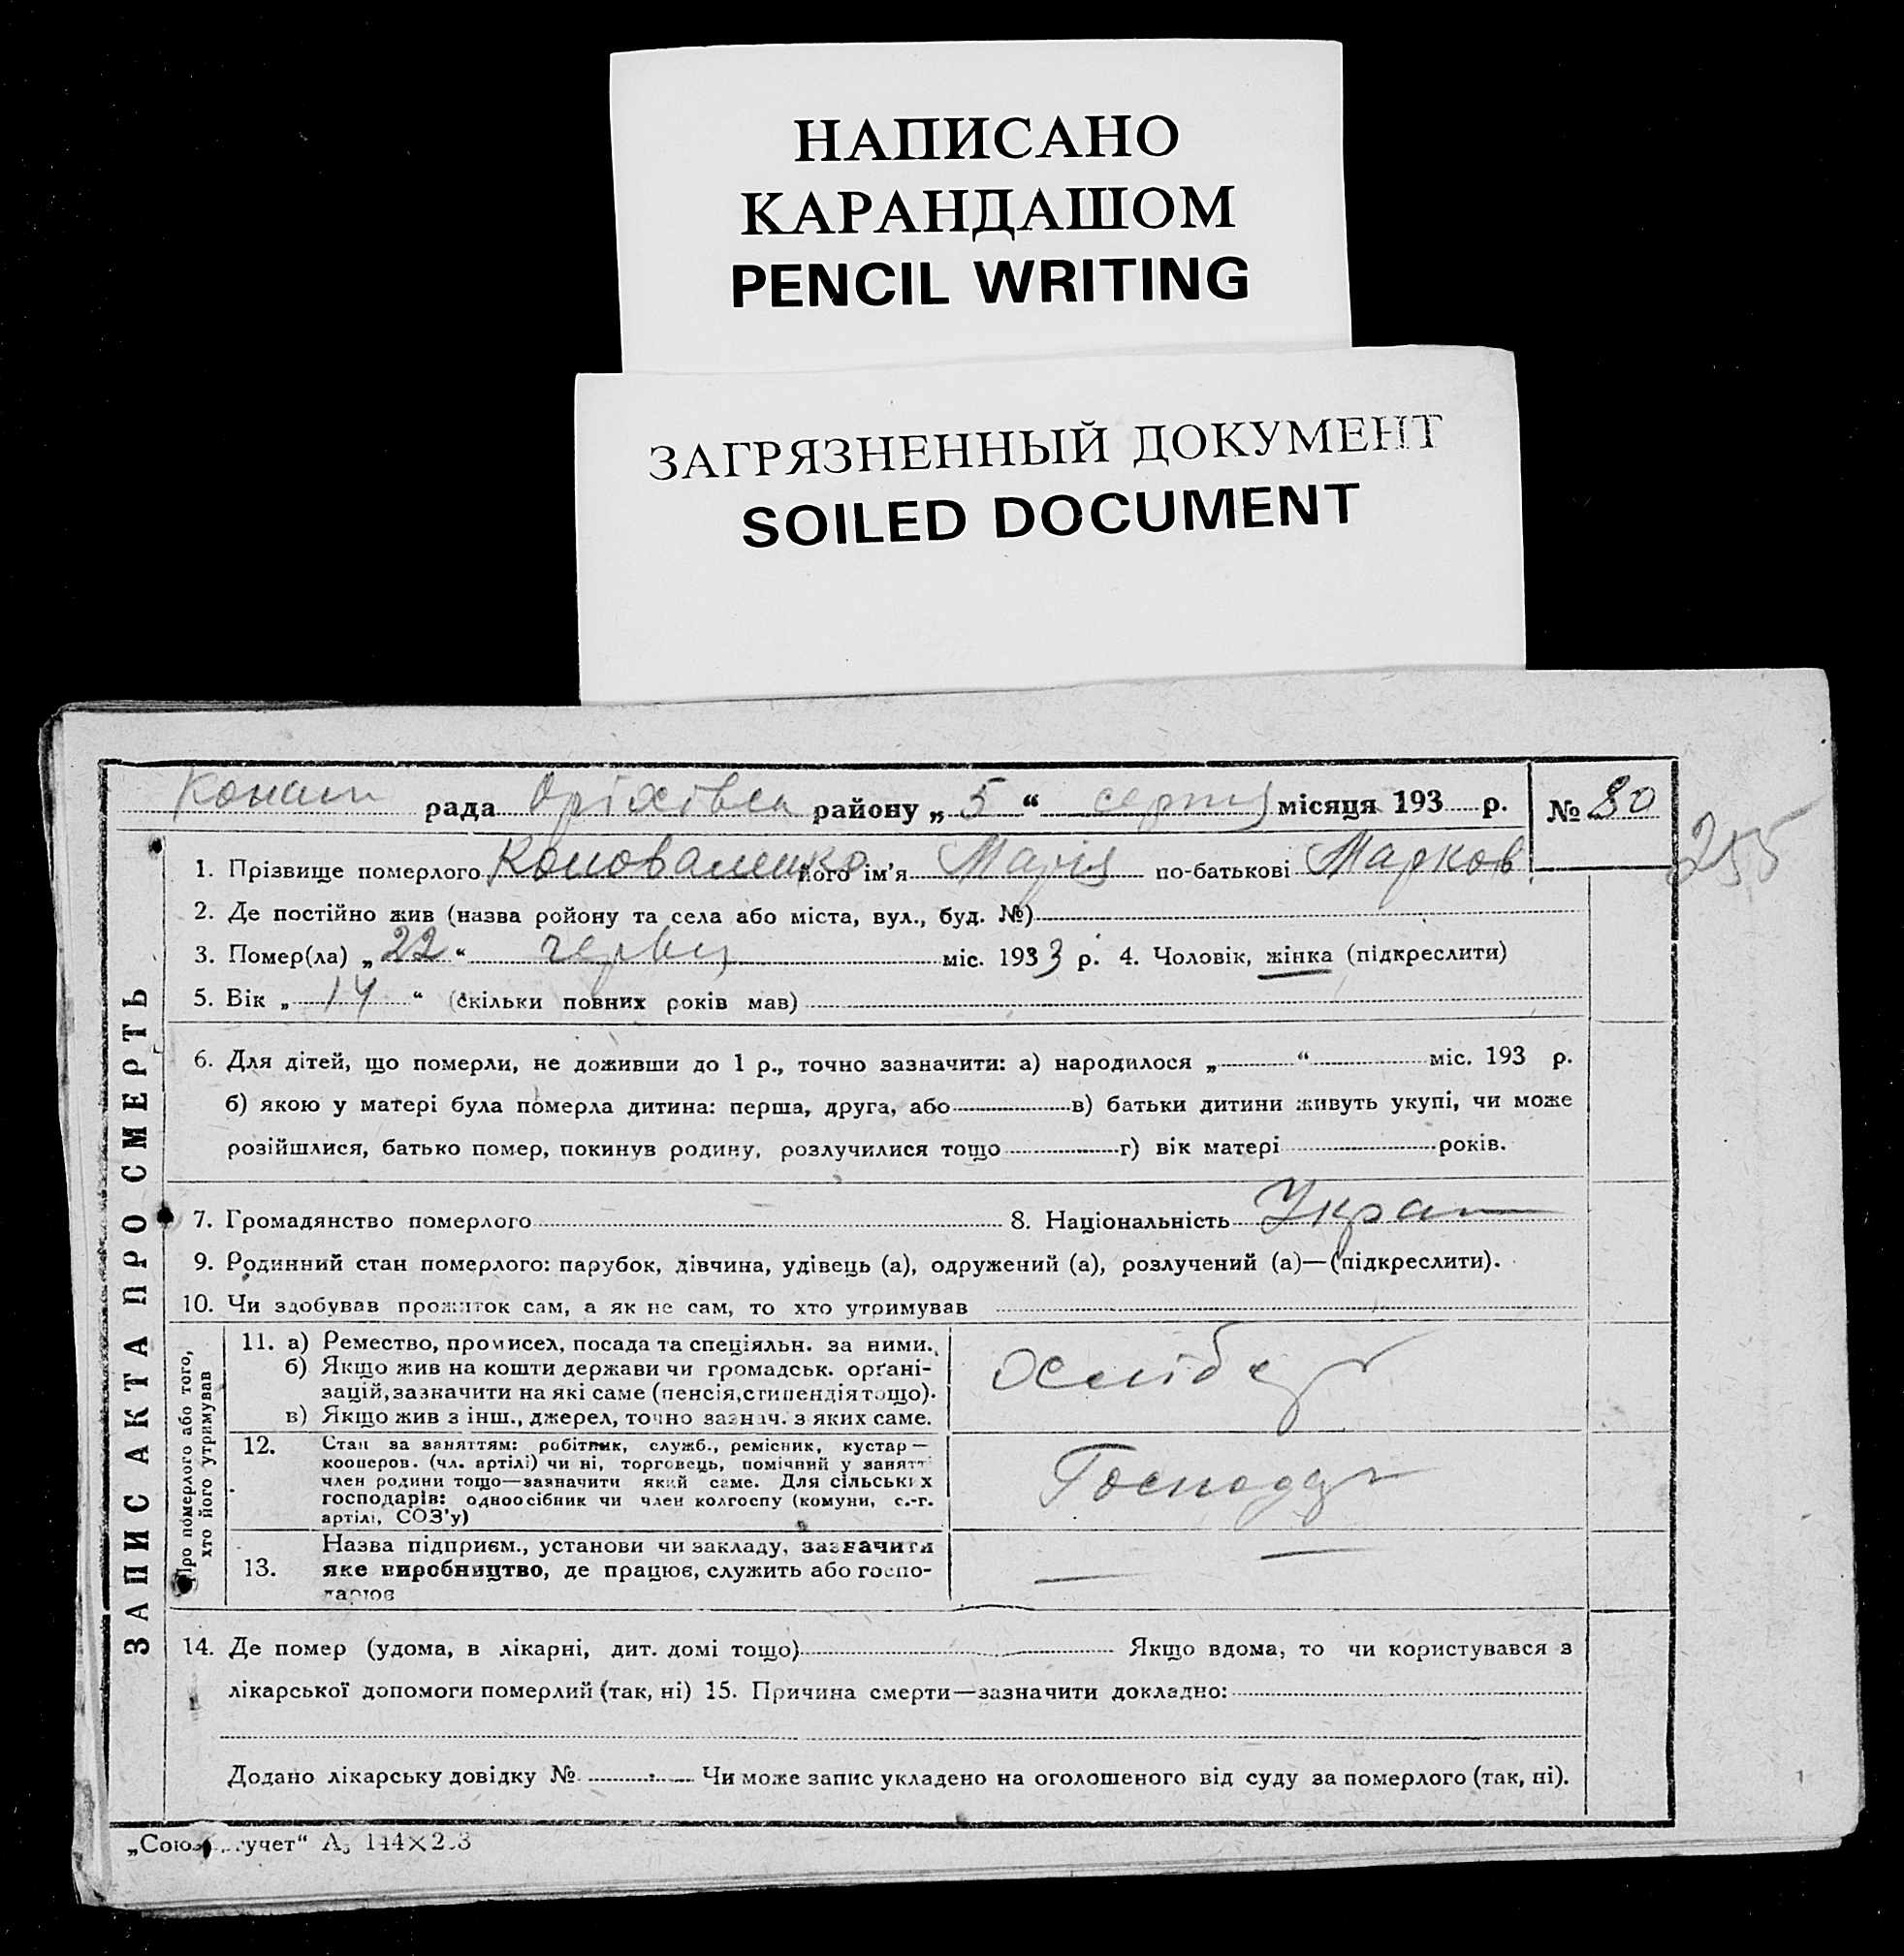 НАПИСАНО
КАРАНДАШОМ
PENCIL WRITING
ЗАГРЯЗНЕННЫЙ ДОКУМЕНТ
SOILED DOCUMENT
рада Оріхівск району „ 5 “ серпня місяця 193 р. № 80
255
1. Прізвище померлого Коноваленко його ім'я Марія по-батькові Марков
2. Де постійно жив (назва ройону та села або міста, вул., буд. №)
3. Помер(ла) „ 22 “ червня міс. 1933 р. 4. Чоловік, жінка (підкреслити)
5. Вік „ 14 “ (скільки повних років мав)
6. Для дітей, що померли, не доживши до 1 р., точно зазначити: а) народилося „ “ міс. 193 р.
б) якою у матері була померла дитина: перша, друга, або в) батьки дитини живуть укупі, чи може
розійшлися, батько помер, покинув родину, розлучилися тощо г) вік матері років.
7. Громадянство померлого 8. Національність Укра
9. Родинний стан померлого: парубок, дівчина, удівець (а), одружений (а), розлучений (а)—(підкреслити).
10. Чи здобував прожиток сам, а як не сам, то хто утримував
ЗАПИС АКТА ПРО СМЕРТЬ
Про померлого або того,
хто його утримував
11. а) Ремество, промисел, посада та спеціяльн. за ними.
б) Якщо жив на кошти держави чи громадськ. орґані-
зацій, зазначити на які саме (пенсія, стипендія тощо).
в) Якщо жив з інш., джерел, точно зазнач. з яких саме.
12. Стан за заняттям: робітник, служб., ремісник, кустар—
кооперов. (чл. артілі) чи ні, торговець, помічний у занятт
член родини тощо—зазначити який саме. Для сільських
господарів: одноосібник чи член колгоспу (комуни, с.-г.
артілі, СОЗ'у)
Господар
13. Назва підприєм., установи чи закладу, зазначити
яке виробництво, де працює, служить або госпо-
дарює
14. Де помер (удома, в лікарні, дит. домі тощо) Якщо вдома, то чи користувався з
лікарської допомоги померлий (так, ні) 15. Причина смерти—зазначити докладно:
Додано лікарську довідку № Чи може запис укладено на оголошеного від суду за померлого (так, ні).